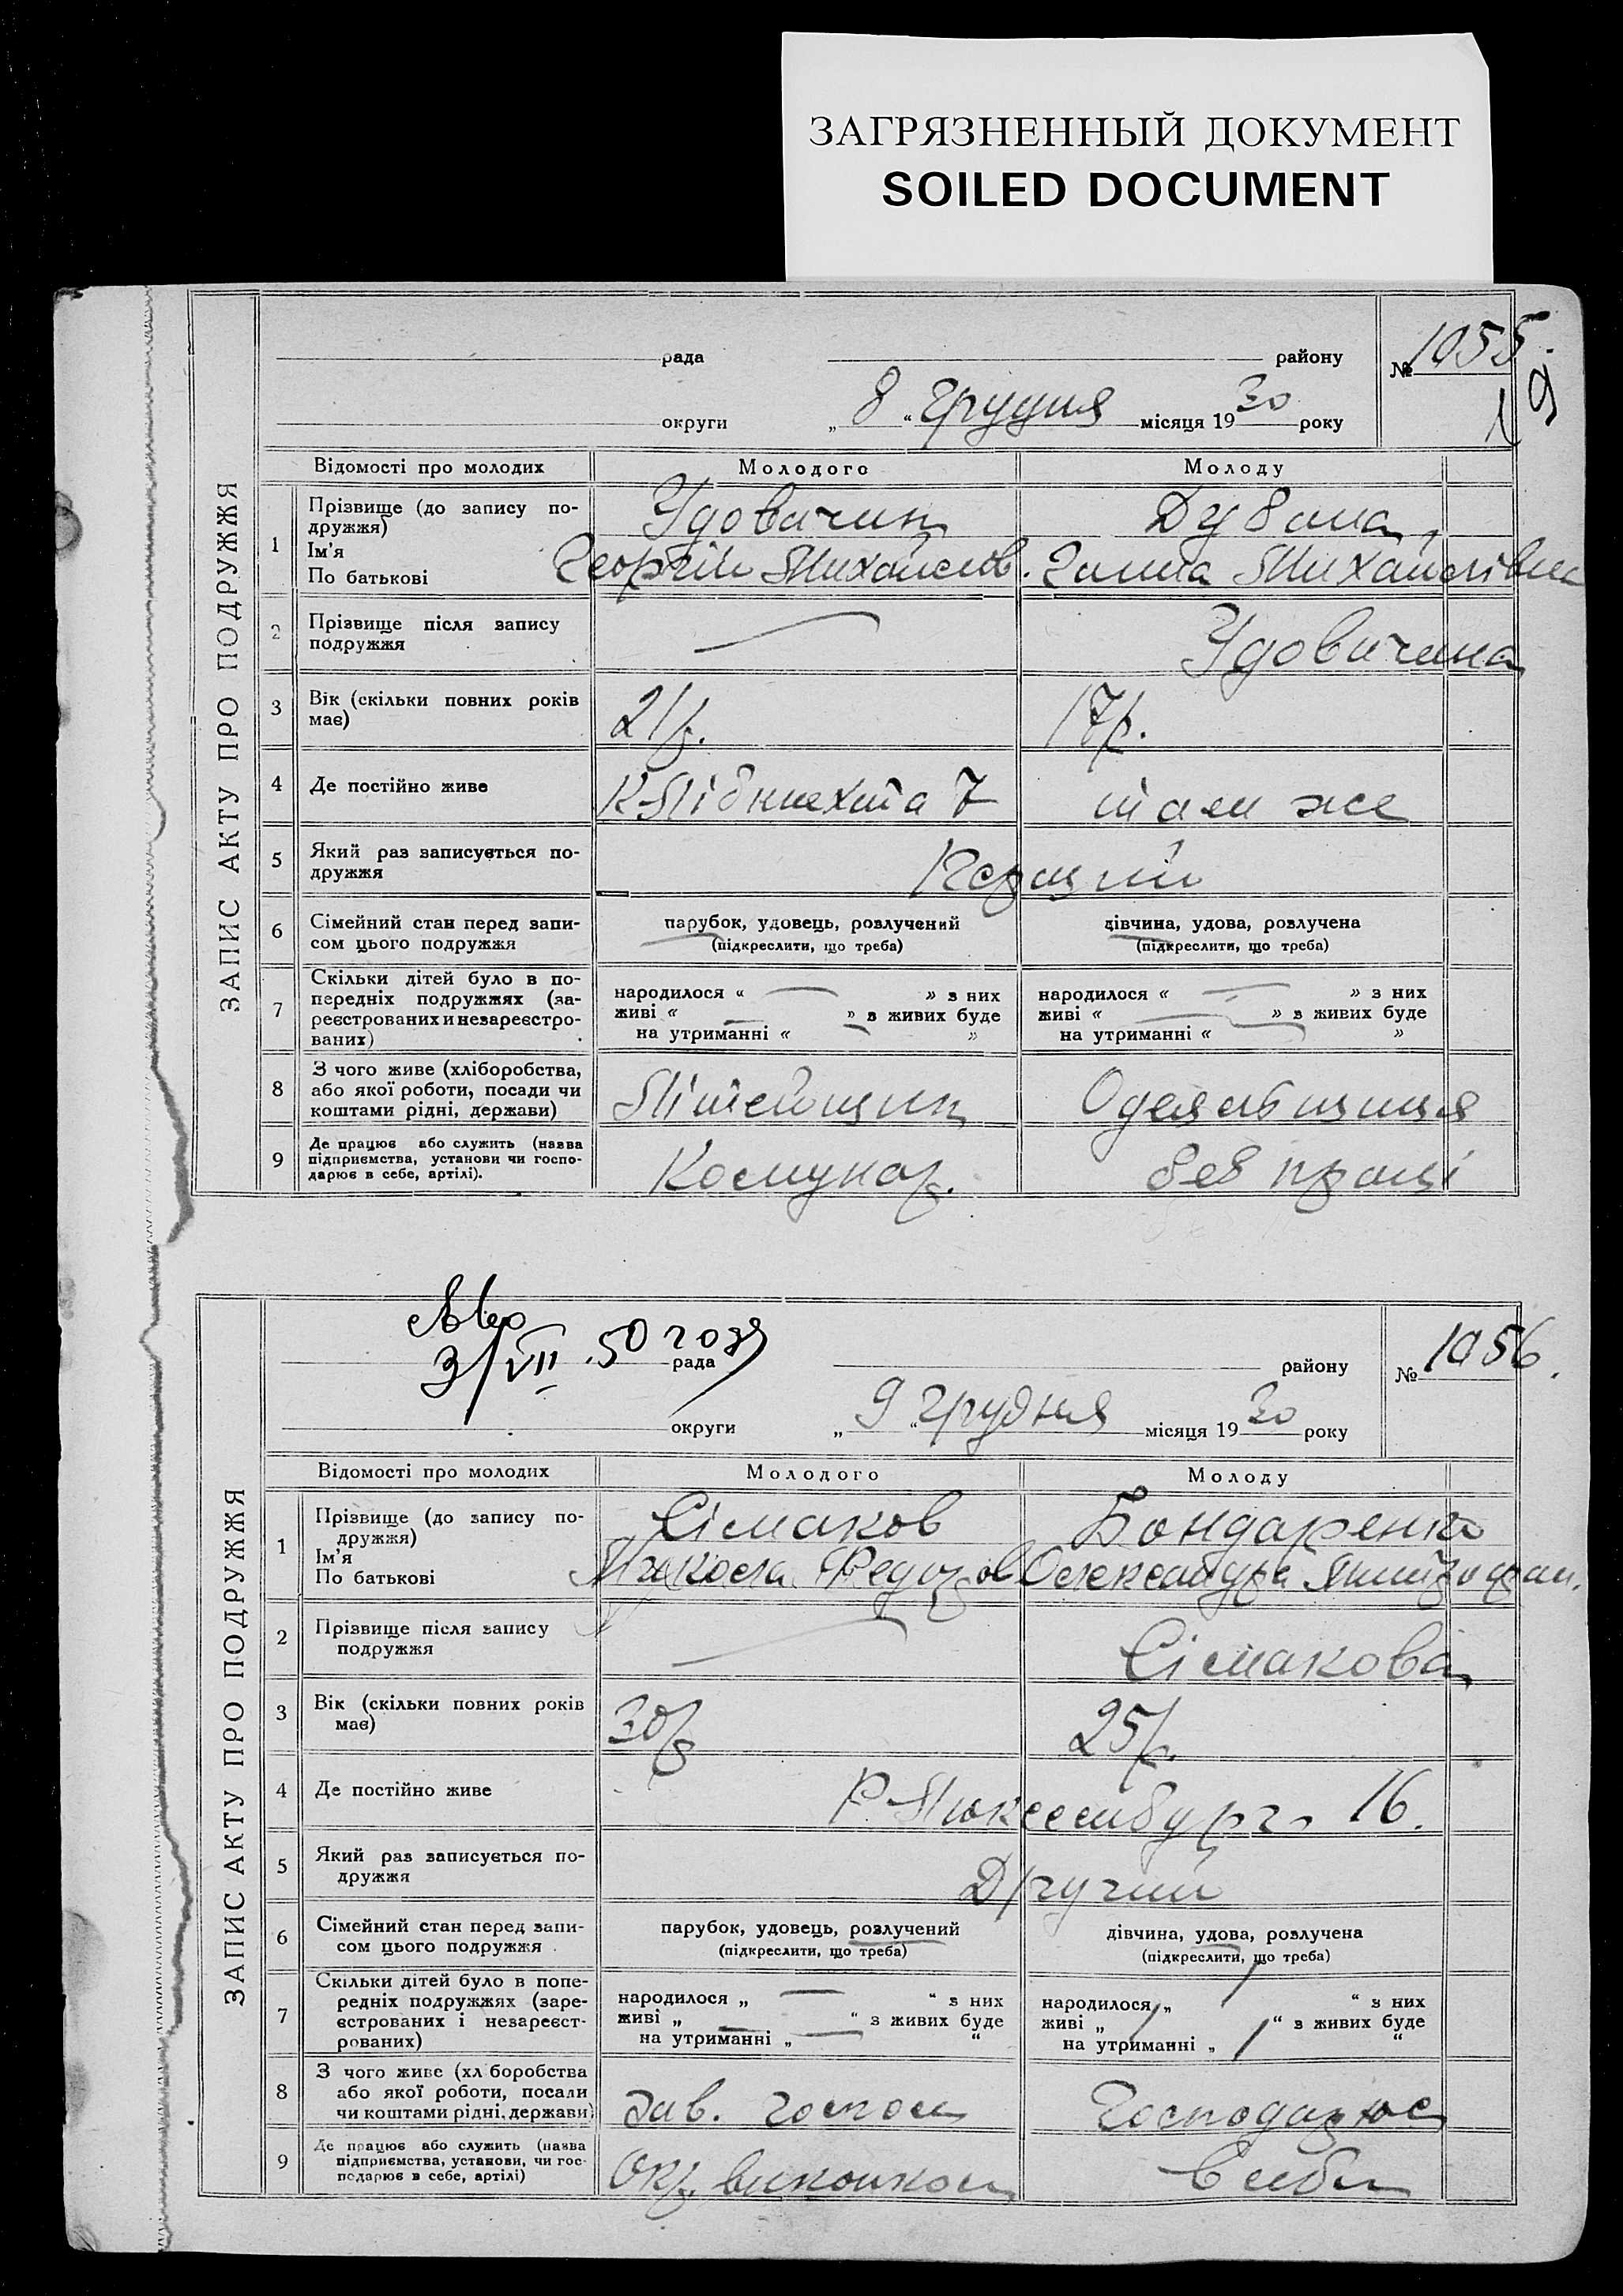 ЗАГРЯЗНЕННЫЙ ДОКУМЕНТ
SOILED DOCUMENT
ЗАПИС АКТУ ПРО ПОДРУЖЖЯ
рада района району № 1055.
19
округи „ 8 “ грудня місяця 1930 року
Відомості про молодих Молодого Молоду
1 Прізвище (до запису по-
дружжя) Удовичин
Ім'я
По батькові Георгій Михайлов. Ганна Михайлівна
2 Прізвище після запису
подружжя — Удовичина
3 Вік (скільки повних років
має) 21 р. 17 р.
4 Де постійно живе К-Лібкнехта 7 там же
5 Який раз записується по-
дружжя Перший
6 Сімейний стан перед запи-
сом цього подружжя
парубок, удовець, розлучений дівчина, удова, розлучена
(підкреслити, що треба) (підкреслити, що треба)
7 Скільки дітей було в по-
передніх подружжях (за-
реєстрованих и незареєстро-
ваних)
народилося « — » з них народилося « — » з них
живі « — » з живих буде живі « — » з живих буде
на утриманні « — » на утриманні « — »
8 З чого живе (хліборобства,
або якої роботи, посади чи
коштами рідні, держави) Літейщик
9 Де працює або служить (назва
підприємства, установи чи госпо-
дарює в себе, артілі).
Комунар. без праці
ЗАПИС АКТУ ПРО ПОДРУЖЖЯ
3/VII .50 года
рада району № 1056.
округи „ 9 “ грудня місяця 1930 року
Відомості про молодих Молодого Молоду
1 Прізвище (до запису по-
дружжя) Сімаков Бондаренко
Ім'я
По батькові Микола Федоров Олександра
2 Прізвище після запису
подружжя — Сімакова
3 Вік (скільки повних років
має) 30 р 25 р.
4 Де постійно живе Р-Люксембург 16.
5 Який раз записується по-
дружжя Другий
6 Сімейний стан перед запи-
сом цього подружжя
парубок, удовець, розлучений дівчина, удова, розлучена
(підкреслити, що треба) (підкреслити, що треба)
7 Скільки дітей було в попе-
редніх подружжях (заре-
єстрованих і незареєст-
рованих)
народилося „ — “ з них народилося „ / “ з них
живі „ — “ з живих буде живі „ / “ з живих буде
на утриманні „ — “ на утриманні „ / “
8 З чого живе (хл боробства
або якої роботи, посали
чи коштами рідні, держави)
Зав. господ Господарює
9 Де працює або служить (назва
підприємства, установи, чи гос-
подарює в себе, артілі)
Окр. виконком в себе